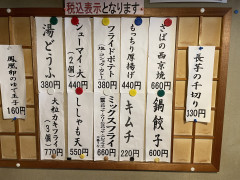 税込表示となります。
長芋の千切り
330円
さばの西京焼
660円
もっちり厚揚げ
440円
フライドポテト
380円
シューマイ・大
(2個)
440円
湯どうふ
380円
鍋餃子
600円
キムチ
220円
ミックスフライ
ししゃも
550円
大粒カキフライ
(3個)
770円
鳳凰卵のゆで玉子
160円